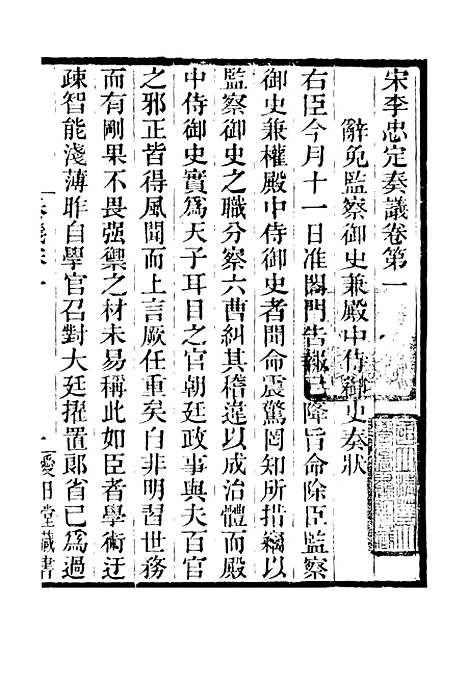 宋李忠定奏議卷第一
辭免監察御史兼殿中侍御史奏狀
右臣今月十一日准閤門告報已降旨命除臣監察
御史兼權殿中侍御史者聞命震驚罔知所措竊以
監察御史之職分察六曹糾其稽違以成治體而殿
中侍御史實爲天子耳目之官朝廷政事與夫百官
之邪正皆得風聞而上言厥任重矣自非明習世務
而有剛果不畏强禦之材未易稱此如臣者學術迂
疎智能淺薄昨自學官召對大廷擢置郞省已爲過
奏議卷一
一
愛日堂藏書